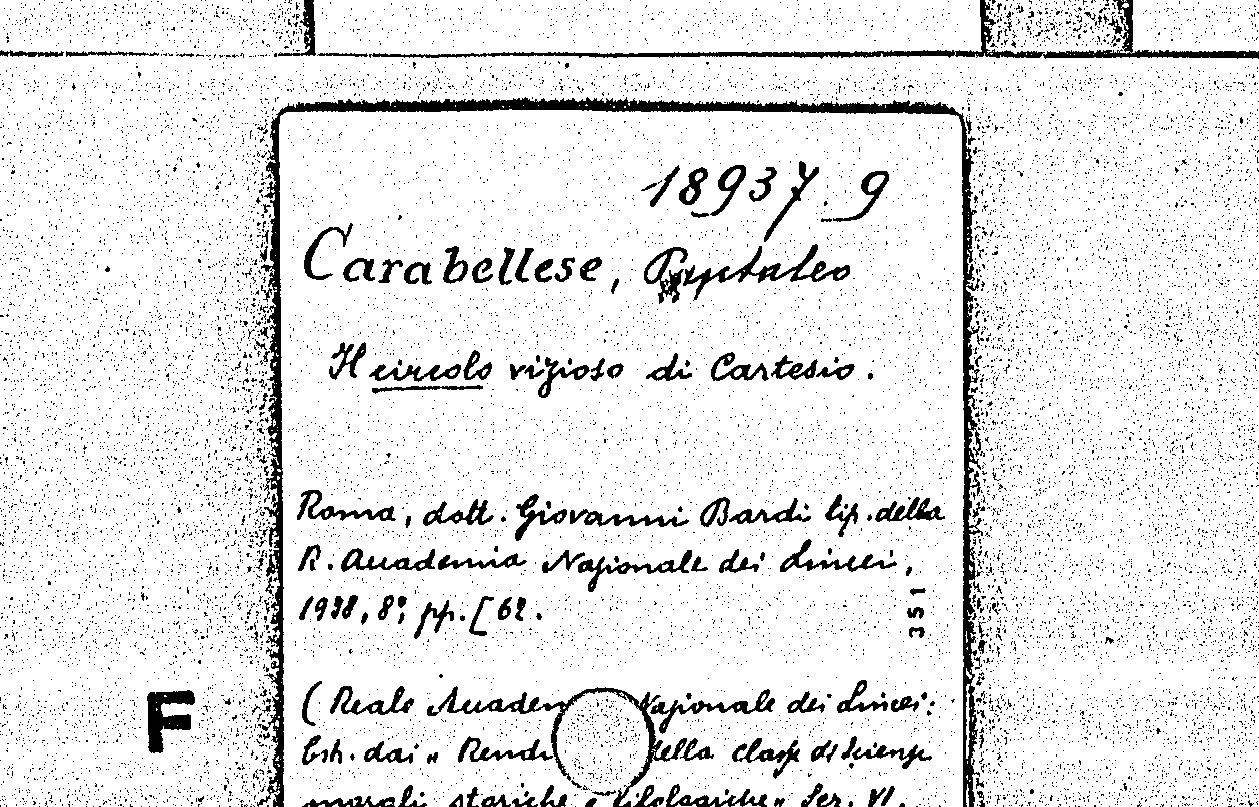 18937. 9
Carabellese, Pantaleo
Il circolo vizioso di Cartesio.
Roma, dott. Giovanni Bardi tip. della
R. Accademia Nazionale dei Lincei,
1938, 8°, pp. [62.
351
( Reale Accadem Nazionale dei Lincei:
Estr. dai „ Rendi della classe di Scienze
F
morali, storiche e filologiche„ Ser. VI.